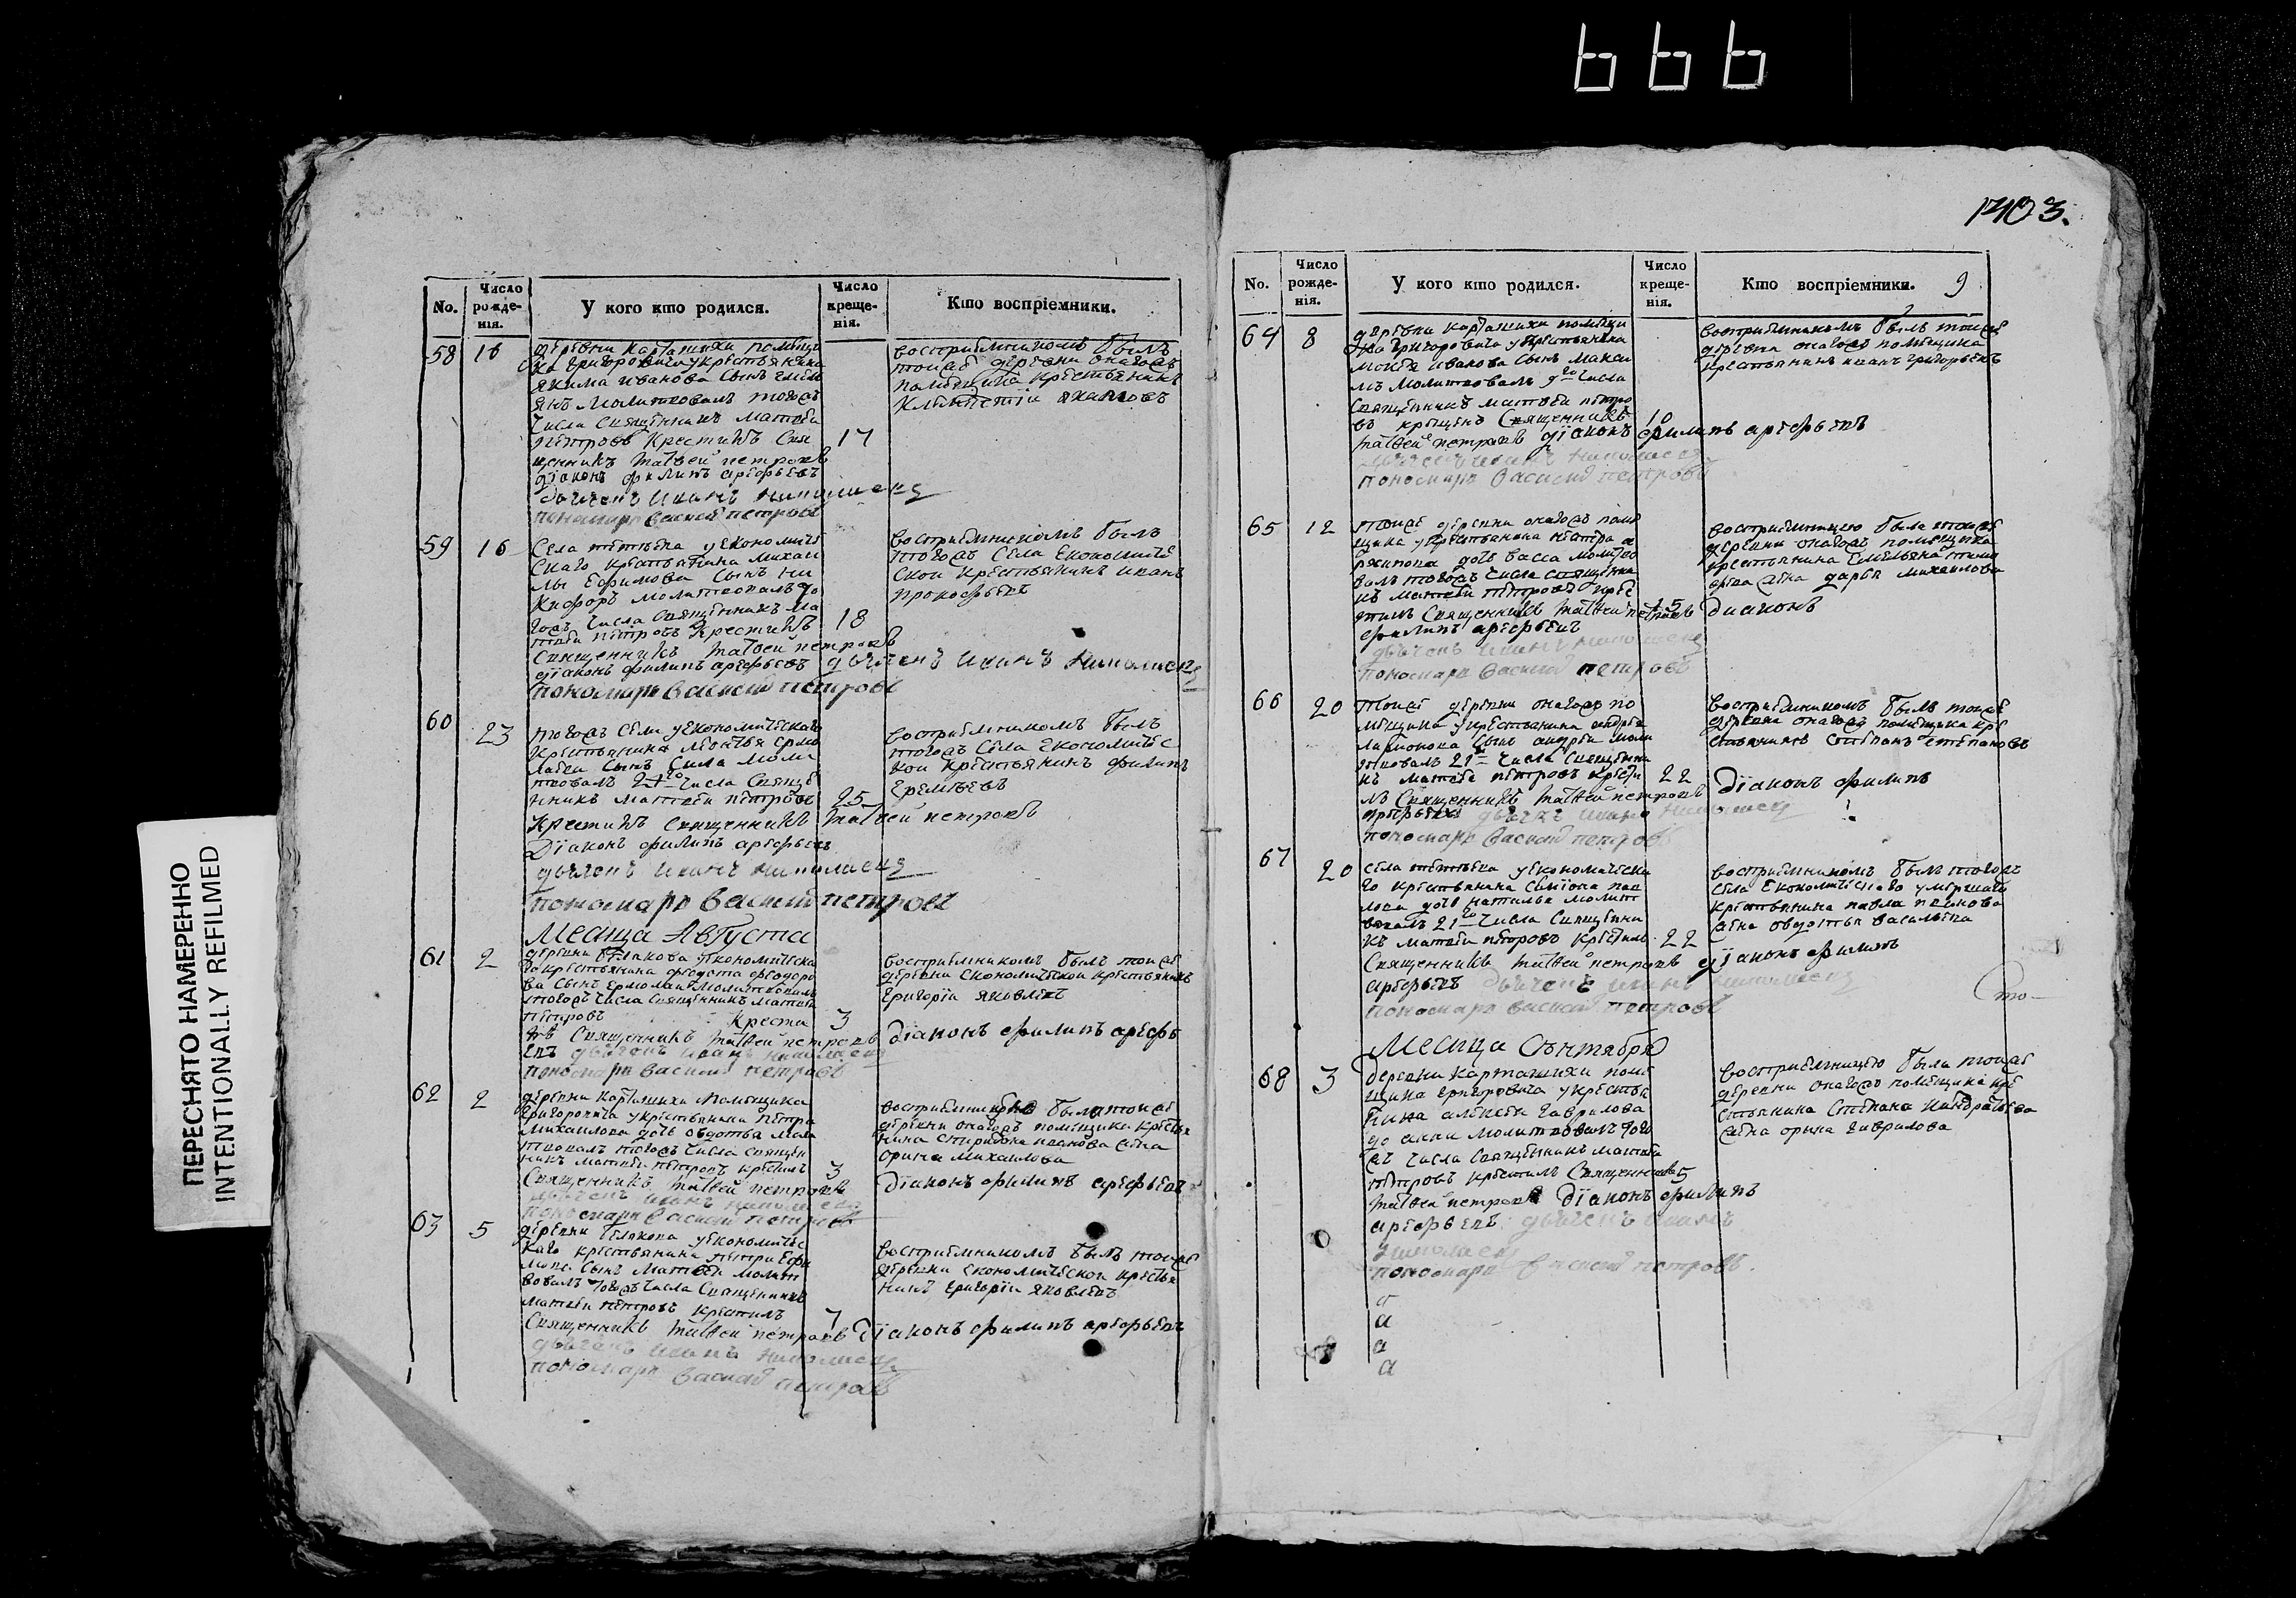 666
1403.
9
ПЕРЕСНЯТО НАМЕРЕННО
INTENTIONALLY REFILMED
No. Число рожде-нія. У кого кто родился. Число креще-нія. Кто воспріемники.
58 16 деревни Карташихи помѣщи
ка Григоровича укрестьянина
якима иванова сынъ емель
янъ молитвовалъ тогожъ
числа священникъ матвѣи
петровъ крестилъ свя 17
щенникъ матвей петровъ
діаконъ филипъ арефьевъ
дьячекъ иванъ николаевъ
пономарь василей петровъ
восприемникомъ былъ
тойже деревни оногожъ
помещика крестьянинъ
59 16 Села тетѣева уекономиче
скаго крестьянина михаи
лы ефимова сынъ ни
кифоръ молитвовалъ то
гожъ числа священникъ ма
твѣи петровъ крестилъ 18
священникъ матвей петровъ
діаконъ филипъ арефьевъ дьячекъ иванъ николаевъ
пономарь василей петровъ
восприемникомъ былъ
тогожъ села економиче
ской крестьянинъ иванъ
прокофьевъ
60 23 тогожъ села уекономическаго
крестьянина леонтья ермо
лаева сынъ сила моли
твовалъ 24го числа священ
нникъ матвеи петровъ 25
крестилъ священникъ матвей петровъ
Діаконъ филипъ арефьевъ
дьячекъ иванъ николаевъ
пономарь василей петровъ
восприемникомъ былъ
тогожъ села економичес
кои крестьянинъ филипъ
еремѣевъ
Месяца Августа
61 2 деревни белякова уекономическа
го крестьянина федота феодоро
ва сынъ ермолаи молитвовалъ
тогожъ числа священникъ матвеи
петровъ крести 3
лъ священникъ матвей петровъ діаконъ филипъ арефь
евъ дьячекъ иванъ николаевъ
пономарь василей петровъ
восприемникомъ былъ тойже
деревни економической крестьянинъ
григорїи яковлевъ
62 2 деревни карташихи помѣщика
григоровича укрестьянина петра
михаилова дочь овдотья моли
твовалъ тогожъ числа священ
никъ матвеи петровъ крестилъ 3
священникъ матвей петровъ діаконъ филипъ арефьевъ
дьячекъ иванъ николаевъ
пономарь василей петровъ
восприемницею была тойже
деревни оногожъ помещика крестья
нина спиридона иванова жена
орина михаилова
63 5 деревни белякова уекономичес
каго крестьянина петра ефи
мова сынъ матвеи молит
вовалъ тогожъ числа священникъ
матвеи петровъ крестилъ 7
священникъ матвей петровъ діаконъ филипъ арефьевъ
дьячекъ иванъ николаевъ
пономарь василей петровъ
восприемникомъ былъ тойже
деревни економической крестья
нинъ григорїи яковлевъ
No. Число рожде-нія. У кого кто родился. Число креще-нія. Кто воспріемники.
64 8 деревни карташихи помещи
ка григоровича укрестьянина
моисея иванова сынъ макси
мъ молитвовалъ 9го числа
священникъ матвеи петро
въ крещенъ священникъ 10
матвей петровъ діаконъ филипъ арефьевъ
дьячекъ иванъ николаевъ
пономарь василей петровъ
восприемникомъ былъ тойже
деревни оногожъ помещика
крестьянинъ иванъ григорьевъ
65 12 тойже деревни оногожъ поме
щика укрестьянина петра а
рхипова дочь васса молитво
валъ тогожъ числа священни
къ матвеи петровъ крес
тилъ священникъ матвей петровъ 15 диаконъ
филипъ арефьевъ
дьячекъ иванъ николаевъ
пономарь василей петровъ
восприемницею была тойже
деревни оногожъ помещика
крестьянина емельяна тимо
феева жена дарья михаилова
66 20 тойже деревни оногожъ по
мещика укрестьянина андрея
ларионова сынъ андреи моли
твовалъ 21го числа священни
къ матвеи петровъ крести 22
лъ священникъ матвей петровъ діаконъ филипъ
арефьевъ дьячекъ иванъ николаевъ
пономарь василей петровъ
восприемникомъ былъ тойже
деревни оногожъ помещика кре
стьянинъ степанъ степановъ
67 20 села тетѣева уекономическа
го крестьянина семїона пав
лова дочь наталья молит
вовалъ 21го числа священни
къ матвеи петровъ крестилъ 22
священникъ матвей петровъ діаконъ филипъ
арефьевъ дьячекъ иванъ николаевъ
пономарь василей петровъ
восприемникомъ былъ тогожъ
села економическаго умершаго
крестьянина павла
жена овдотья васильева
Сто-
Месяца Сентября
68 3 деревни карташихи поме
щика григоровича укрестья
нина алексея гаврилова
до молитвовалъ того
жъ числа священникъ матвеи
петровъ крестилъ священникъ 5
матвей петровъ діаконъ филипъ
арефьевъ дьячекъ иванъ
николаевъ
пономарь василей петровъ.
восприемницею была тойже
деревни оногожъ помещика кре
стьянина степана кондратьева
жена орина гаврилова
а
а
а